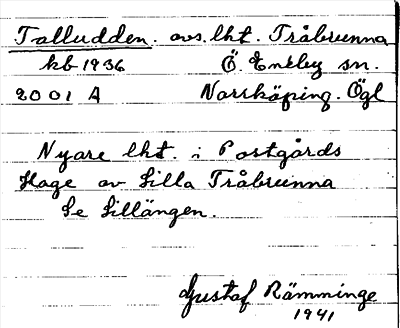 Talludden. avs. lht. Tråbrunna
kb 1936 Ö. Eneby sn.
20 01 A Norrköping. Ögl
Nyare lht. i Postgårds
Hage av Lilla Tråbrunna
Se Lillängen.
Gustaf Rämminge
1941